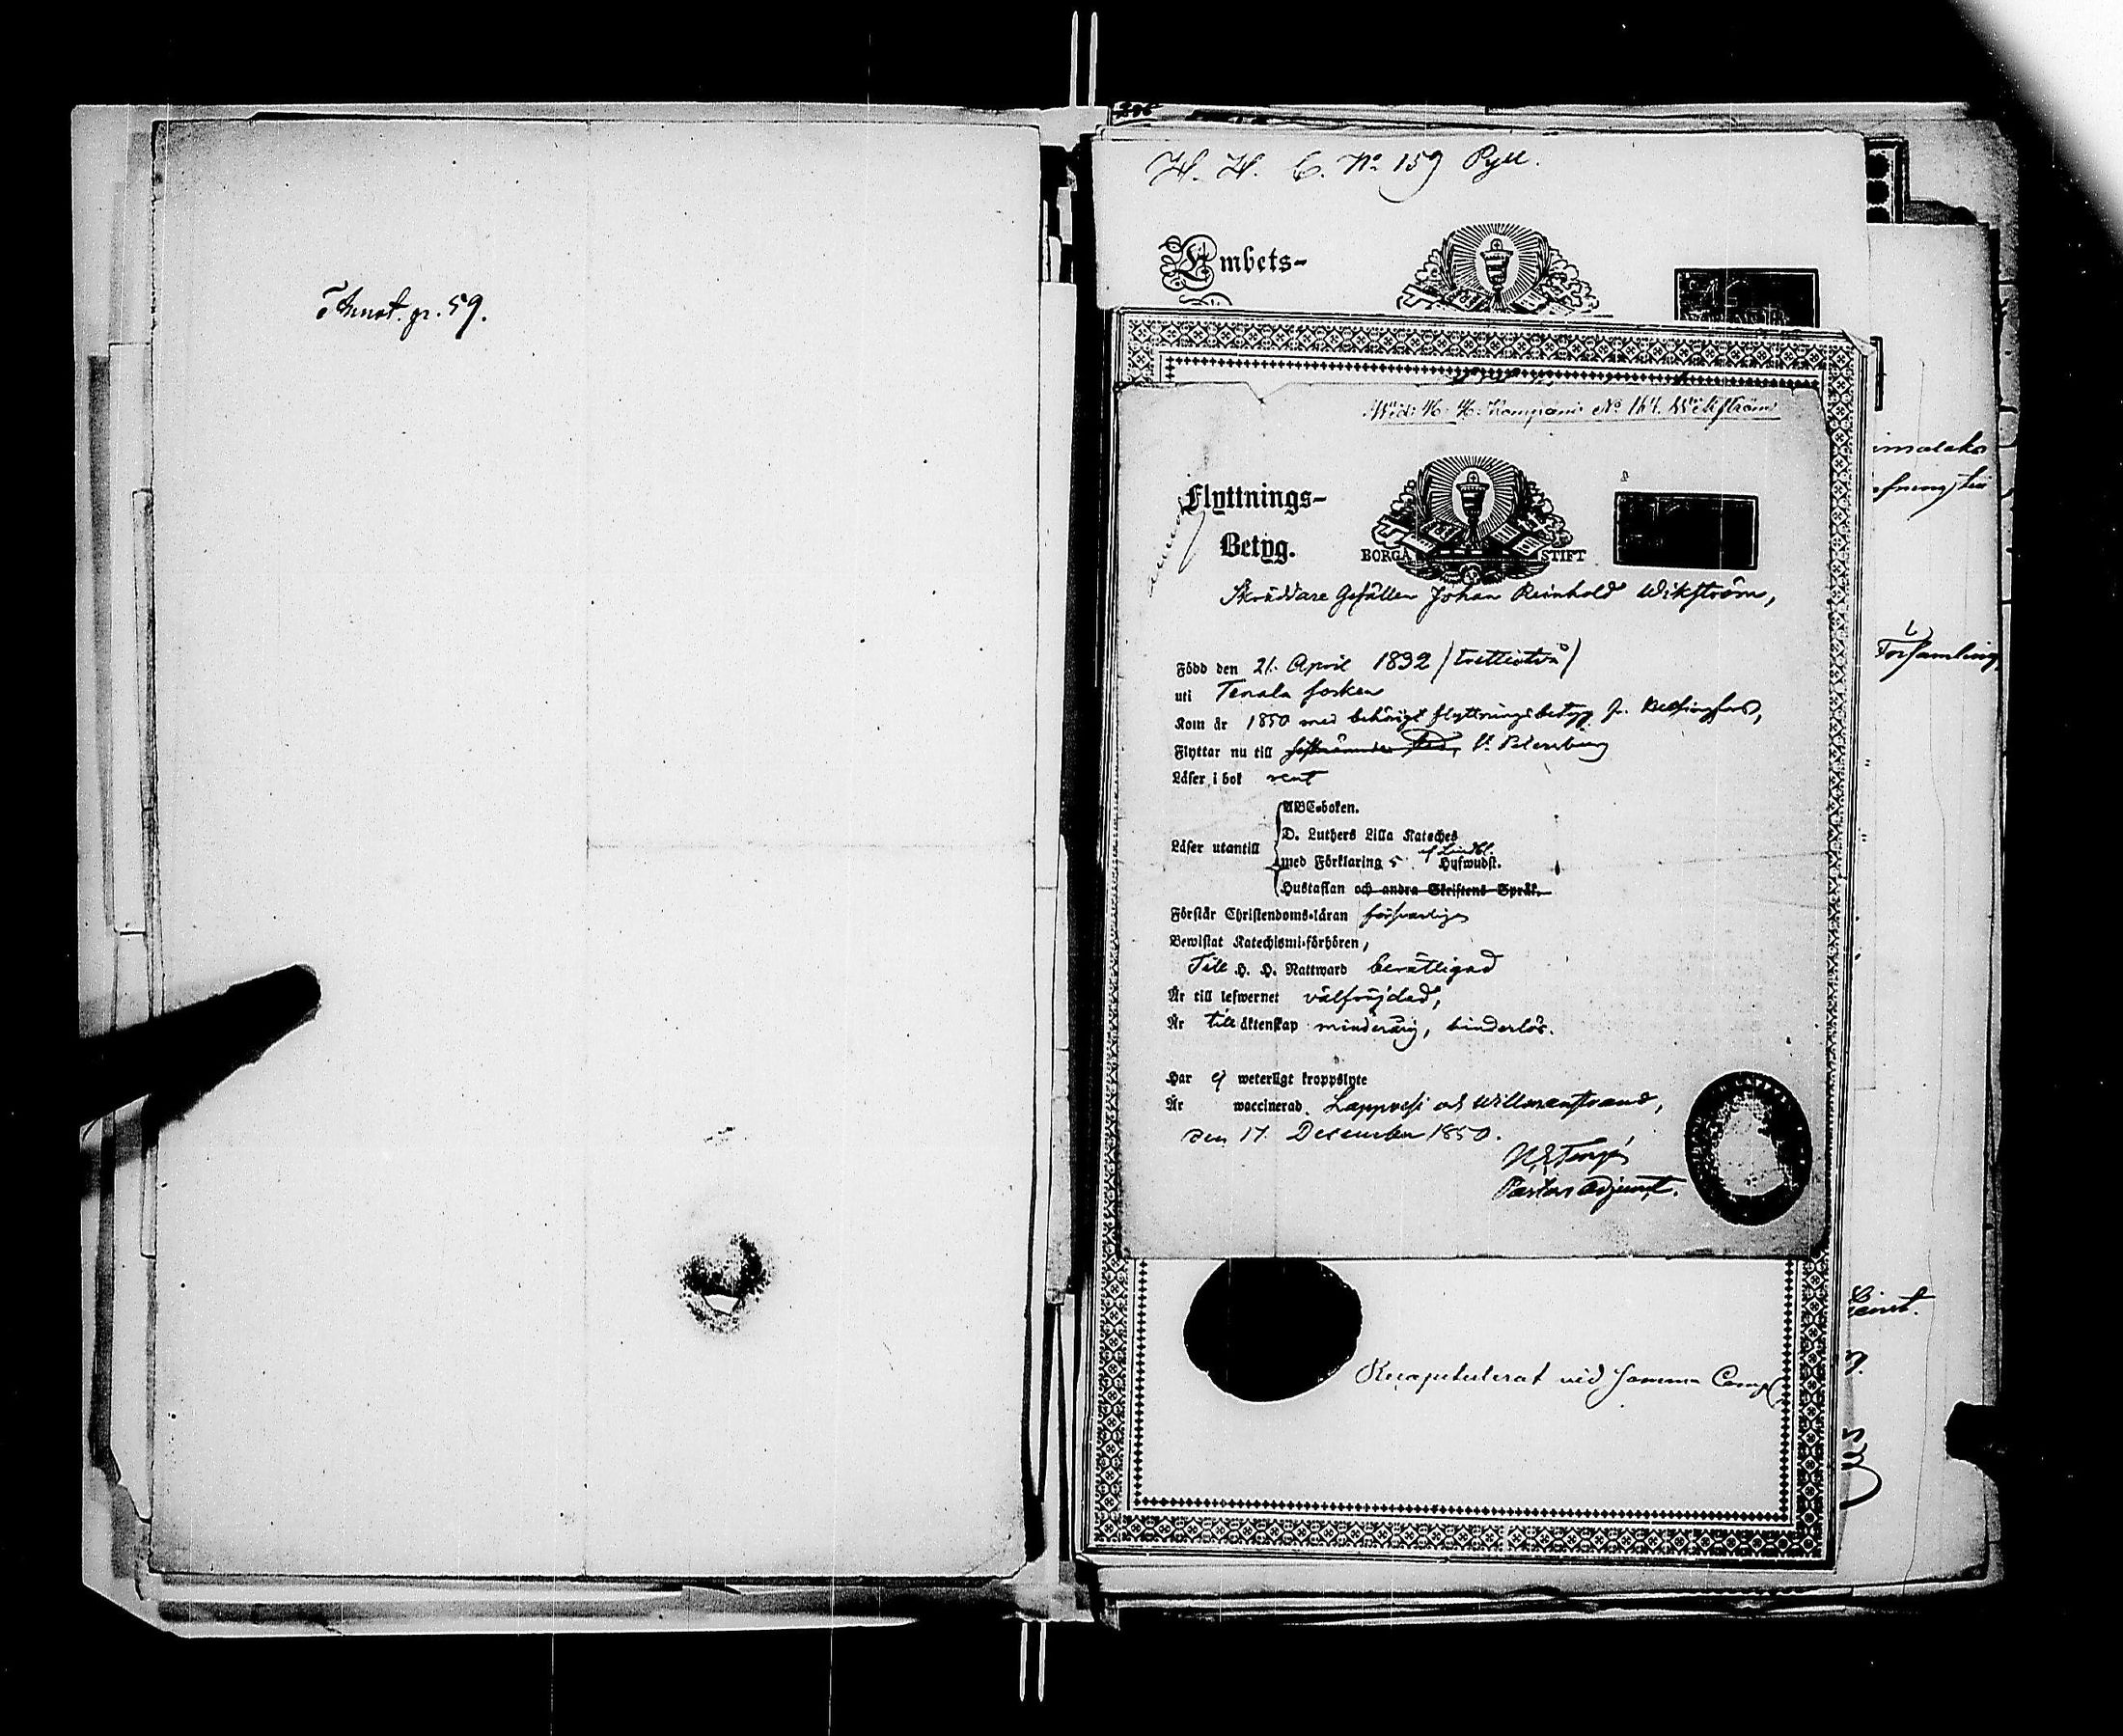 Annot. gr. 59.
H. H. C. No 159 Pyll.
Embets-
Wid H. H. Kompani No 164. Wikström
Flyttnings-
Betyg.
BORGÅ STIFT
Skräddare Gesällen Johan Reinhold Wikström,
Född den 21. April 1832 (trettiotvå)
uti Tenala socken
Kom år 1850 med behörigt flyttningsbetyg fr. Helsingfors,
Flyttar nu till St Petersburg
Läser i bok rent
Läser utantill
ABC-boken.
D. Luthers Lilla Kateches
med Förklaring 5 af Lindbl. Hufwudst.
Hustaflan och andra Skriftens Språk.
Förstår Christendoms-läran försvarligen
Bewistat Katechismi-förhören,
Till H. H. Nattward berättigad
Är till lefwernet välfräjdad,
Är till äktenskap minderårig, hinderlös.
Har ej weterligt kroppslyte
Är waccinerad. Lappvesi och Willmanstrand,
den 17 December 1850.
Pastors Adjunct.
Recapitulerat vid samma Comp
Församling